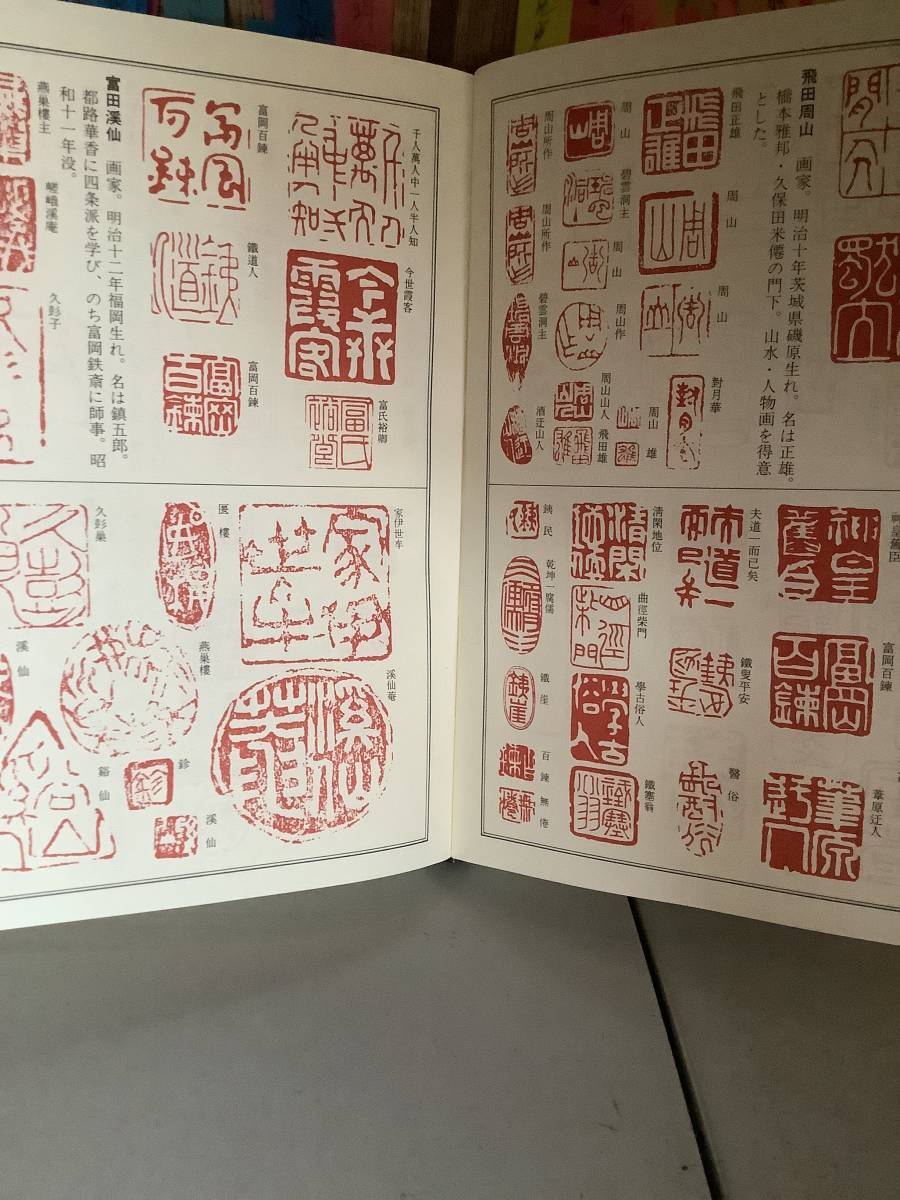 飛田周山　画家。明治十年茨城県磯原生れ。名は正雄。
橋本雅邦・久保田米僊の門下。山水・人物画を得意
とした。
飛田正雄
周山
周山
對月華
周山
碧雲洞主
周山
周山作
周山山人
飛田雄
周山
雄
周山所作
周山所作
碧雲洞主
酒迂山人
神皇舊臣
富岡百鍊
葦原迂人
夫道一而已矣
鐵叟平安
醫俗
清閑地位
曲徑柴門
學古俗人
鐵塞翁
銕民
乾坤一腐儒
鐵崖
百鍊
無倦
千人萬人中一人半人知
今世霞客
富氏裕卿
富岡百鍊
鐵道人
富岡百鍊
富田溪仙　画家。明治十二年福岡生れ。名は鎮五郎。
都路華香に四条派を学び、のち富岡鉄斎に師事。昭
和十一年没。
燕巣樓主
嵯峨溪庵
久彭子
家伊世车
溪仙菴
燕巣樓
鉁
溪仙
久彭巣
溪仙
谿仙